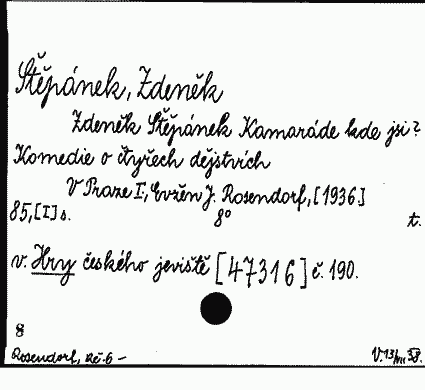 Štěpánek, Zdeněk
Zdeněk Štěpánek Kamaráde kde jsi?
Komedie o čtyřech dějstvích
V Praze I., Evžen J. Rosendorf, [1936]
85, [I] s. 8° t.
v. Hry českého jeviště [47316] č. 190.
8
Rosendorf, Kč 6 –